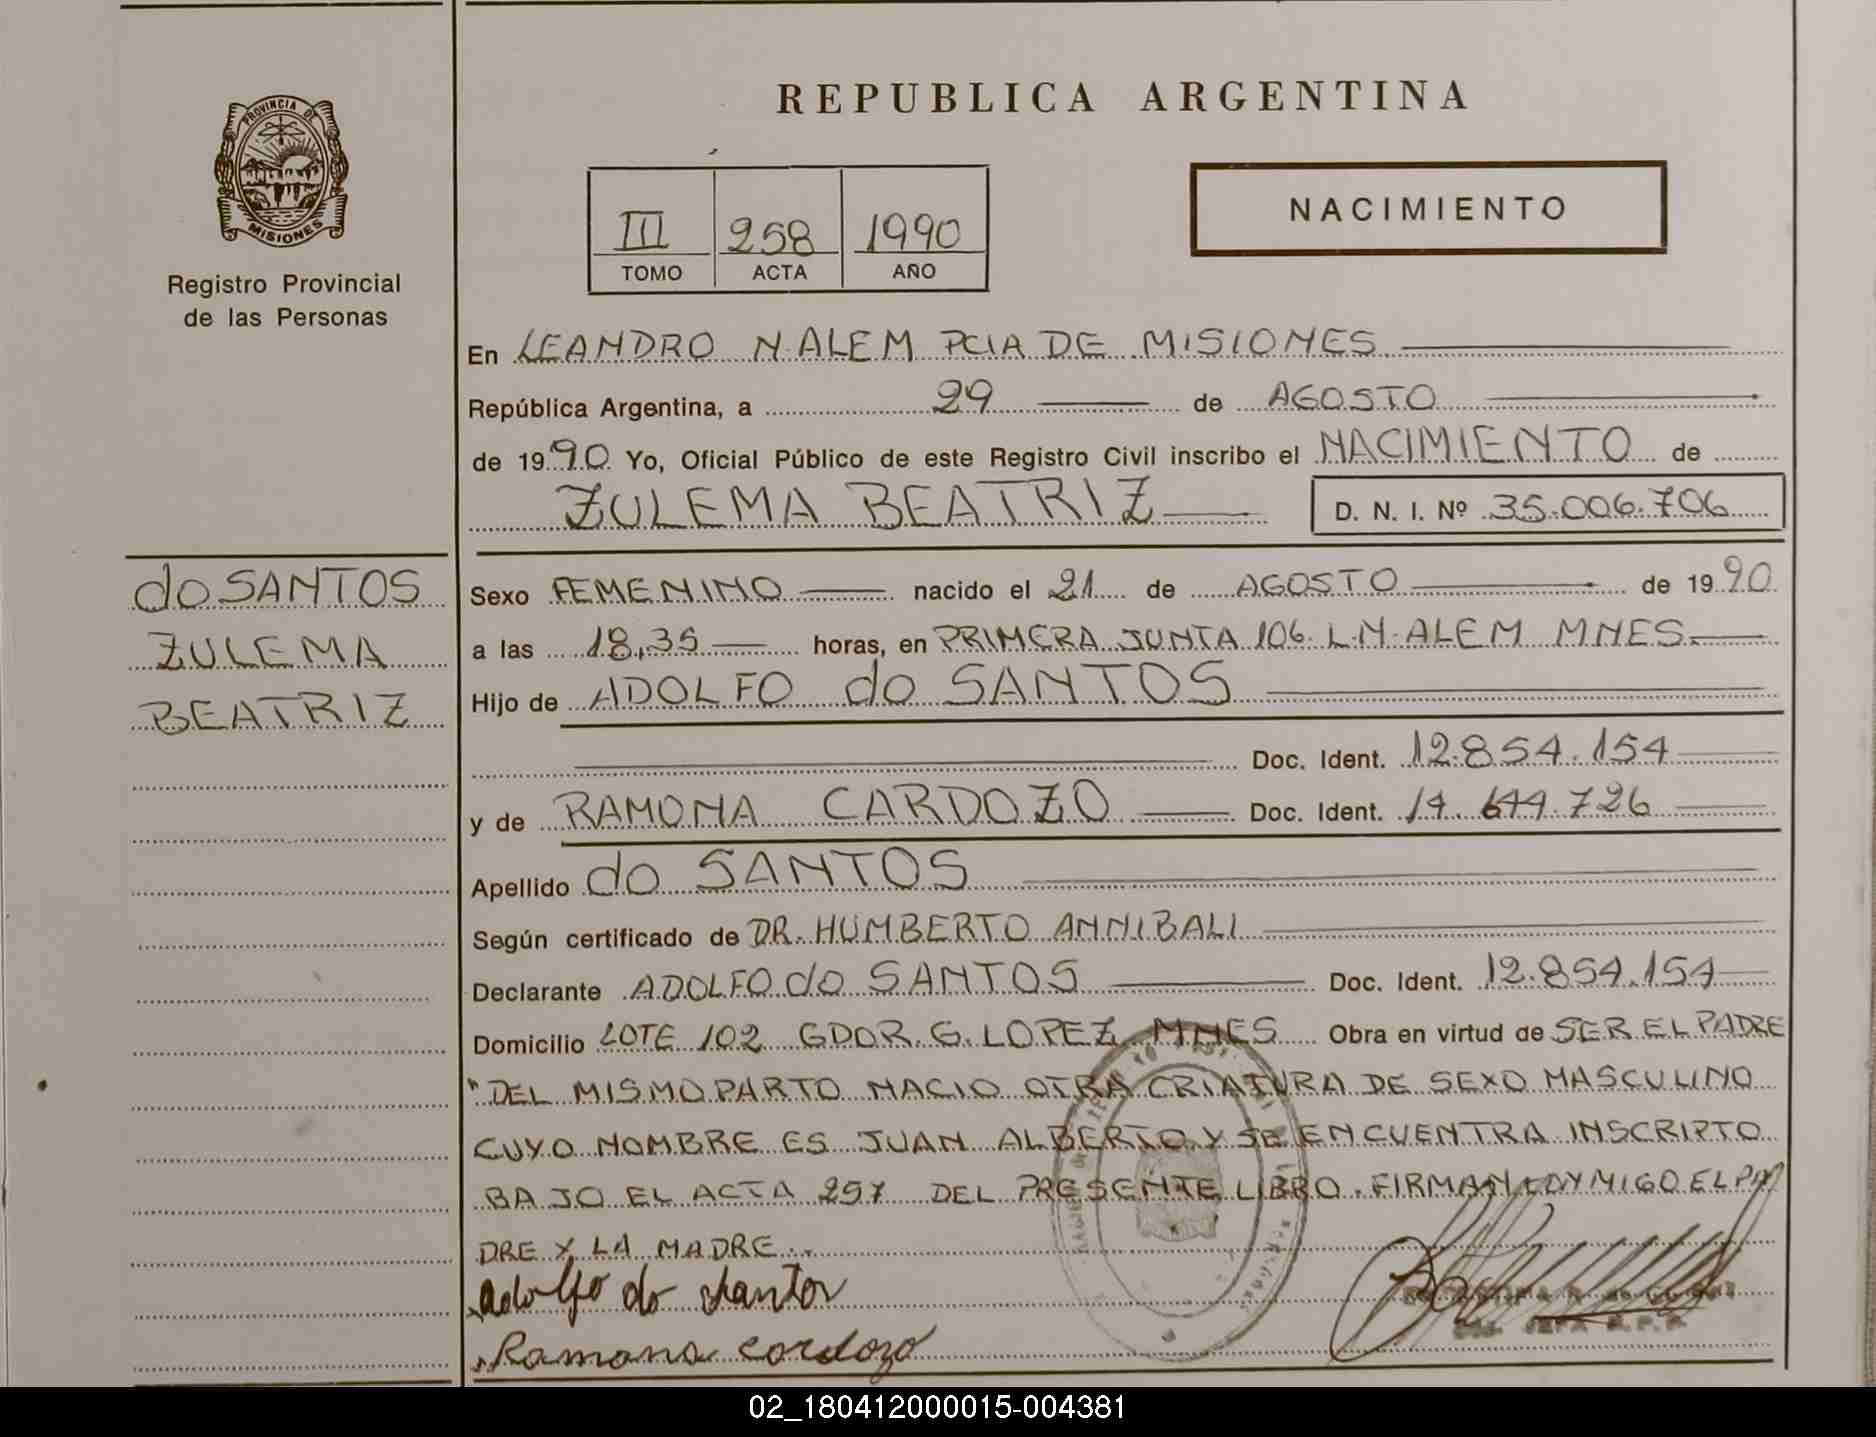 PROVINCIA DE
MISIONES
Registro Provincial
de las Personas
REPUBLICA ARGENTINA
III 258 1990
TOMO ACTA AÑO
NACIMIENTO
En LEANDRO N. ALEM PCIA DE MISIONES
República Argentina, a 29 de AGOSTO
de 1990 Yo, Oficial Público de este Registro Civil inscribo el NACIMIENTO de
ZULEMA BEATRIZ D. N. I. Nº 35.006.706
do SANTOS
ZULEMA
BEATRIZ
Sexo FEMENINO nacido el 21 de AGOSTO de 1990
a las 18,35 horas, en PRIMERA JUNTA 106. L.N. ALEM MNES.
Hijo de ADOLFO do SANTOS
Doc. Ident. 12.854.154
y de RAMONA CARDOZO Doc. Ident. 14.644.726
Apellido do SANTOS
Según certificado de DR. HUMBERTO ANNIBALI
Declarante ADOLFO do SANTOS Doc. Ident. 12.854.154
Domicilio LOTE 102 GDOR. G. LOPEZ MNES Obra en virtud de SER EL PADRE
"DEL MISMO PARTO NACIO OTRA CRIATURA DE SEXO MASCULINO
CUYO NOMBRE ES JUAN ALBERTO Y SE ENCUENTRA INSCRIPTO
BAJO EL ACTA 257 DEL PRESENTE LIBRO. FIRMAN CONMIGO EL PA
DRE Y LA MADRE..
Adolfo do Santos
Ramona Cardozo
JEFA R.P.P.
02_180412000015-004381